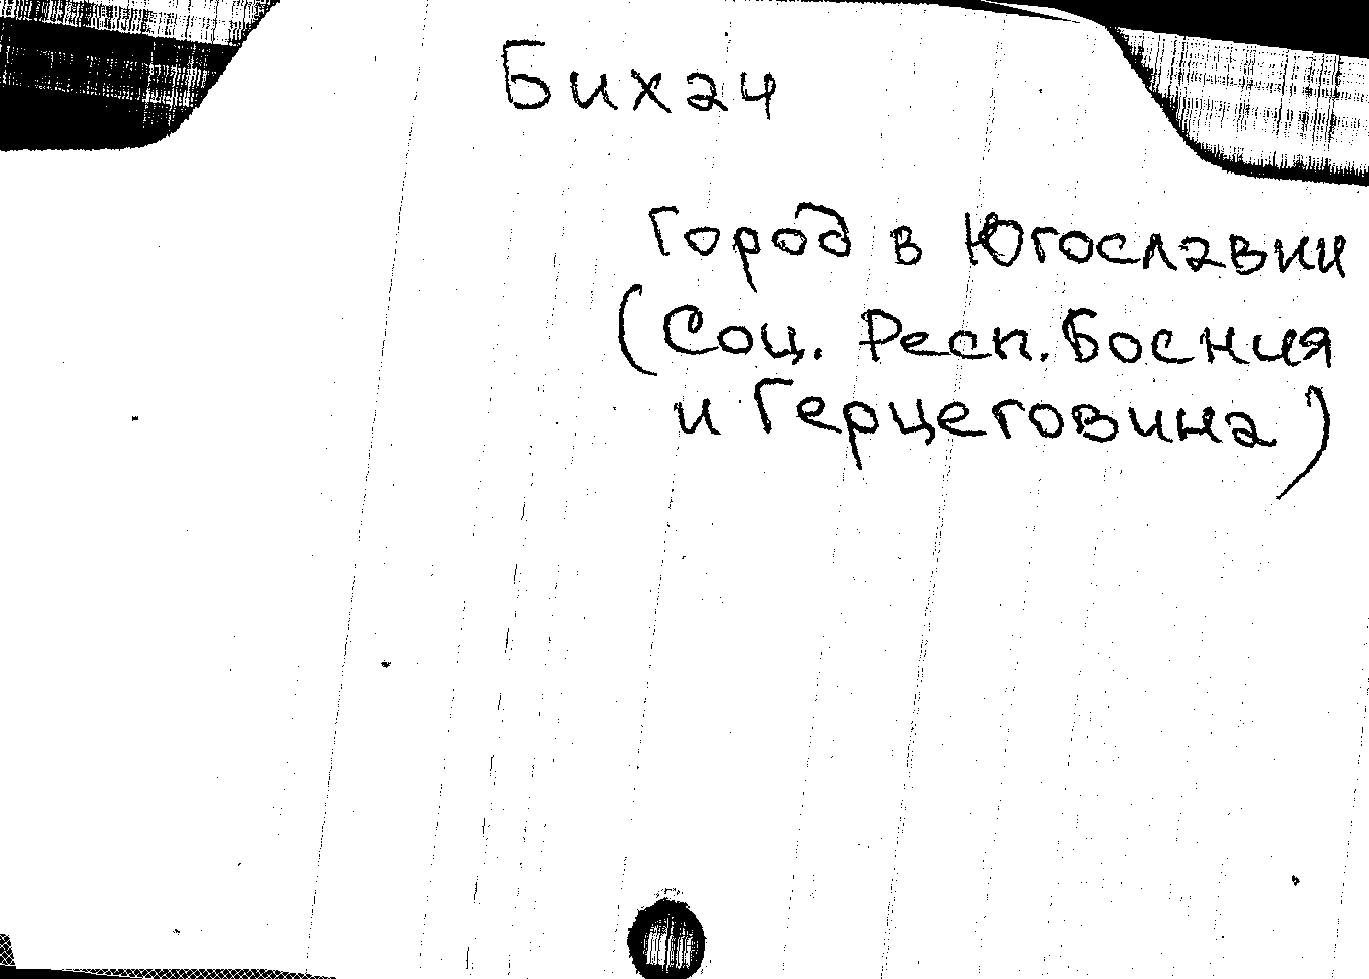 Бихач
Город в Югославии
(Соц. Респ. Босния
и Герцеговина)